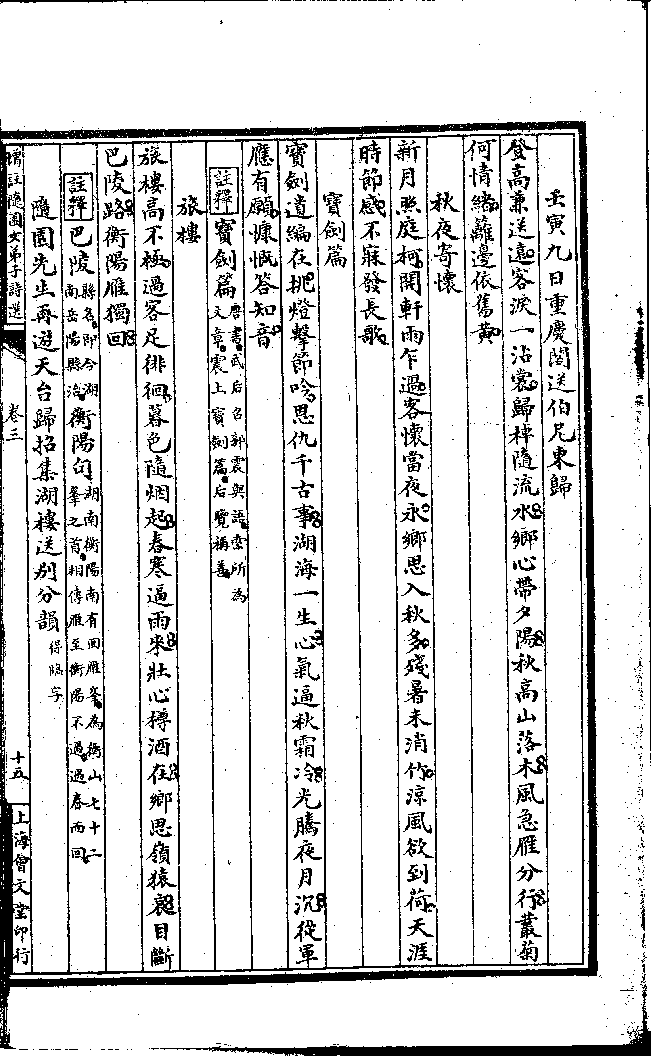 壬寅九日重慶閣送伯兄東歸
登高兼送遠客淚一沾裳歸棹隨流水鄉心帶夕陽秋高山落木風急雁分行叢菊
何情緒籬邊依舊黃
秋夜寄懷
新月照庭柯開軒雨乍過客懷當夜永鄉思入秋多殘暑未消竹涼風欲到荷天涯
時節感不寐發長歌
寶劍篇
寶劍遺編在挑燈擊節吟恩仇千古事湖海一生心氣逼秋霜冷光騰夜月沉從軍
應有願慷慨答知音
註釋 寶劍篇 唐書武后召郭震與語索所為
文章震上寶劍篇后覽稱善
旅樓
旅樓高不極過客足徘徊暮色隨烟起春寒逼雨來壯心樽酒在鄉思嶺猿哀目斷
巴陵路衡陽雁獨回
註釋 巴陵 縣名即今湖
南岳陽縣治 衡陽句 湖南衡陽南有回雁峯為衡山七十二
峯之首相傳雁至衡陽不過過春而回
隨園先生再遊天台歸招集湖樓送別分韻 得臨字
增註隨園女弟子詩選 卷三 十五 上海會文堂印行